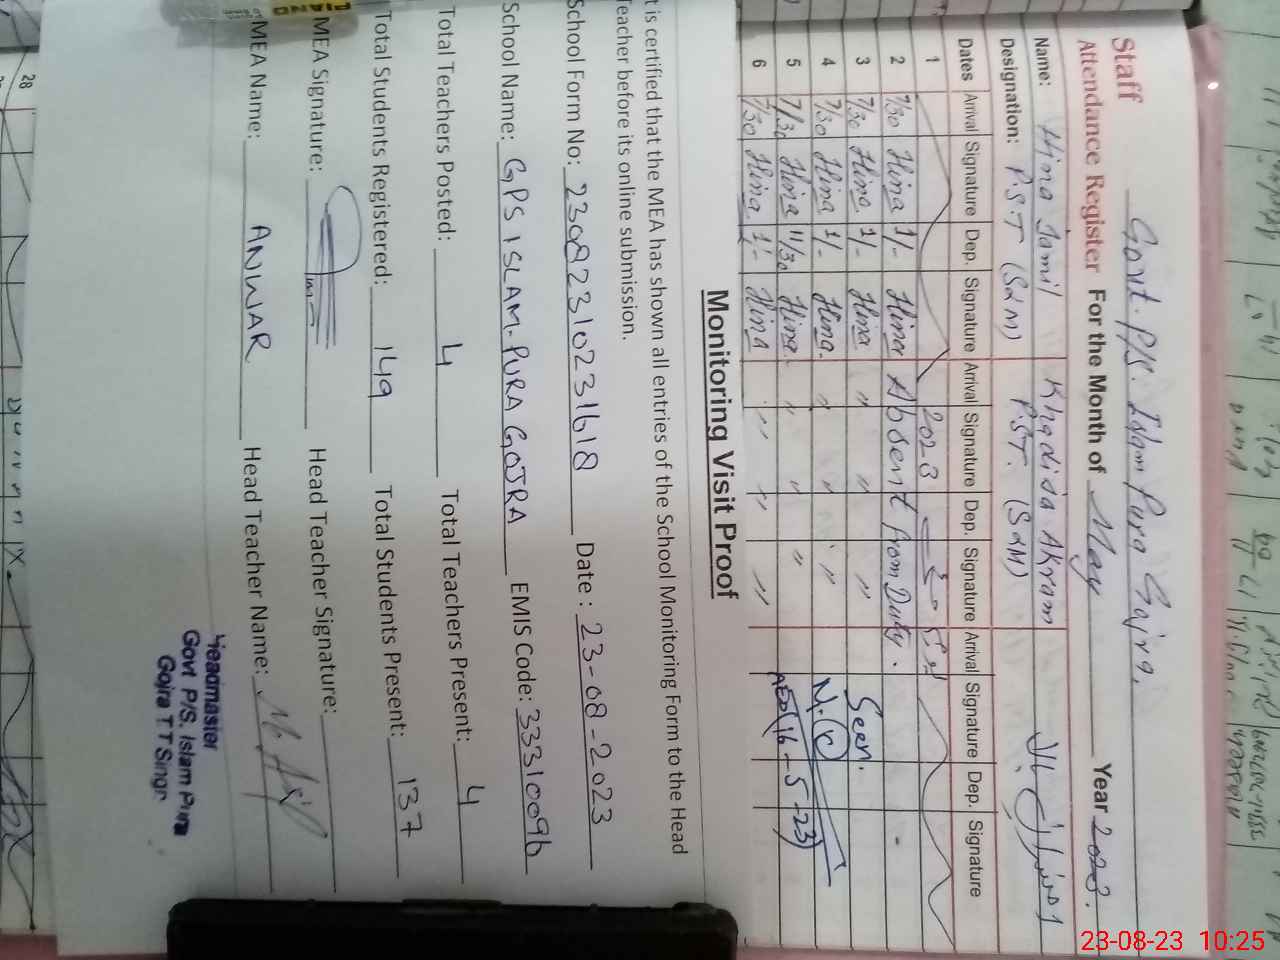 Staff
Govt. P/S. Islam Pura Gojra.
Attendance Register For the Month of May Year 2023.
Name: Hina Jamil Khadija Akram
Designation: P.S.T (S&M) P.S.T. (S&M)
Dates Arrival Signature Dep. Signature Arrival Signature Dep. Signature Arrival Signature Dep. Signature
1 2023
2 7/30 Hina 1/- Hina Absent from Duty.
3 7/30 Hina 1/- Hina " " " Seen.
4 7/30 Hina 1/- Hina " " "
5 7/30 Hina 11/30 Hina " " " AEO (16-5-23)
6 7/30 Hina 1/- Hina " " "
Monitoring Visit Proof
t is certified that the MEA has shown all entries of the School Monitoring Form to the Head
Teacher before its online submission.
School Form No: 23082310231618 Date: 23-08-2023
School Name: GPS ISLAM-PURA GOJRA EMIS Code: 33310096
Total Teachers Posted: 4 Total Teachers Present: 4
Total Students Registered: 149 Total Students Present: 137
MEA Signature: Head Teacher Signature:
MEA Name: ANWAR Head Teacher Name:
Headmaster
Govt P/S. Islam Pura
Gojra T T Singh
28
23-08-23 10:25